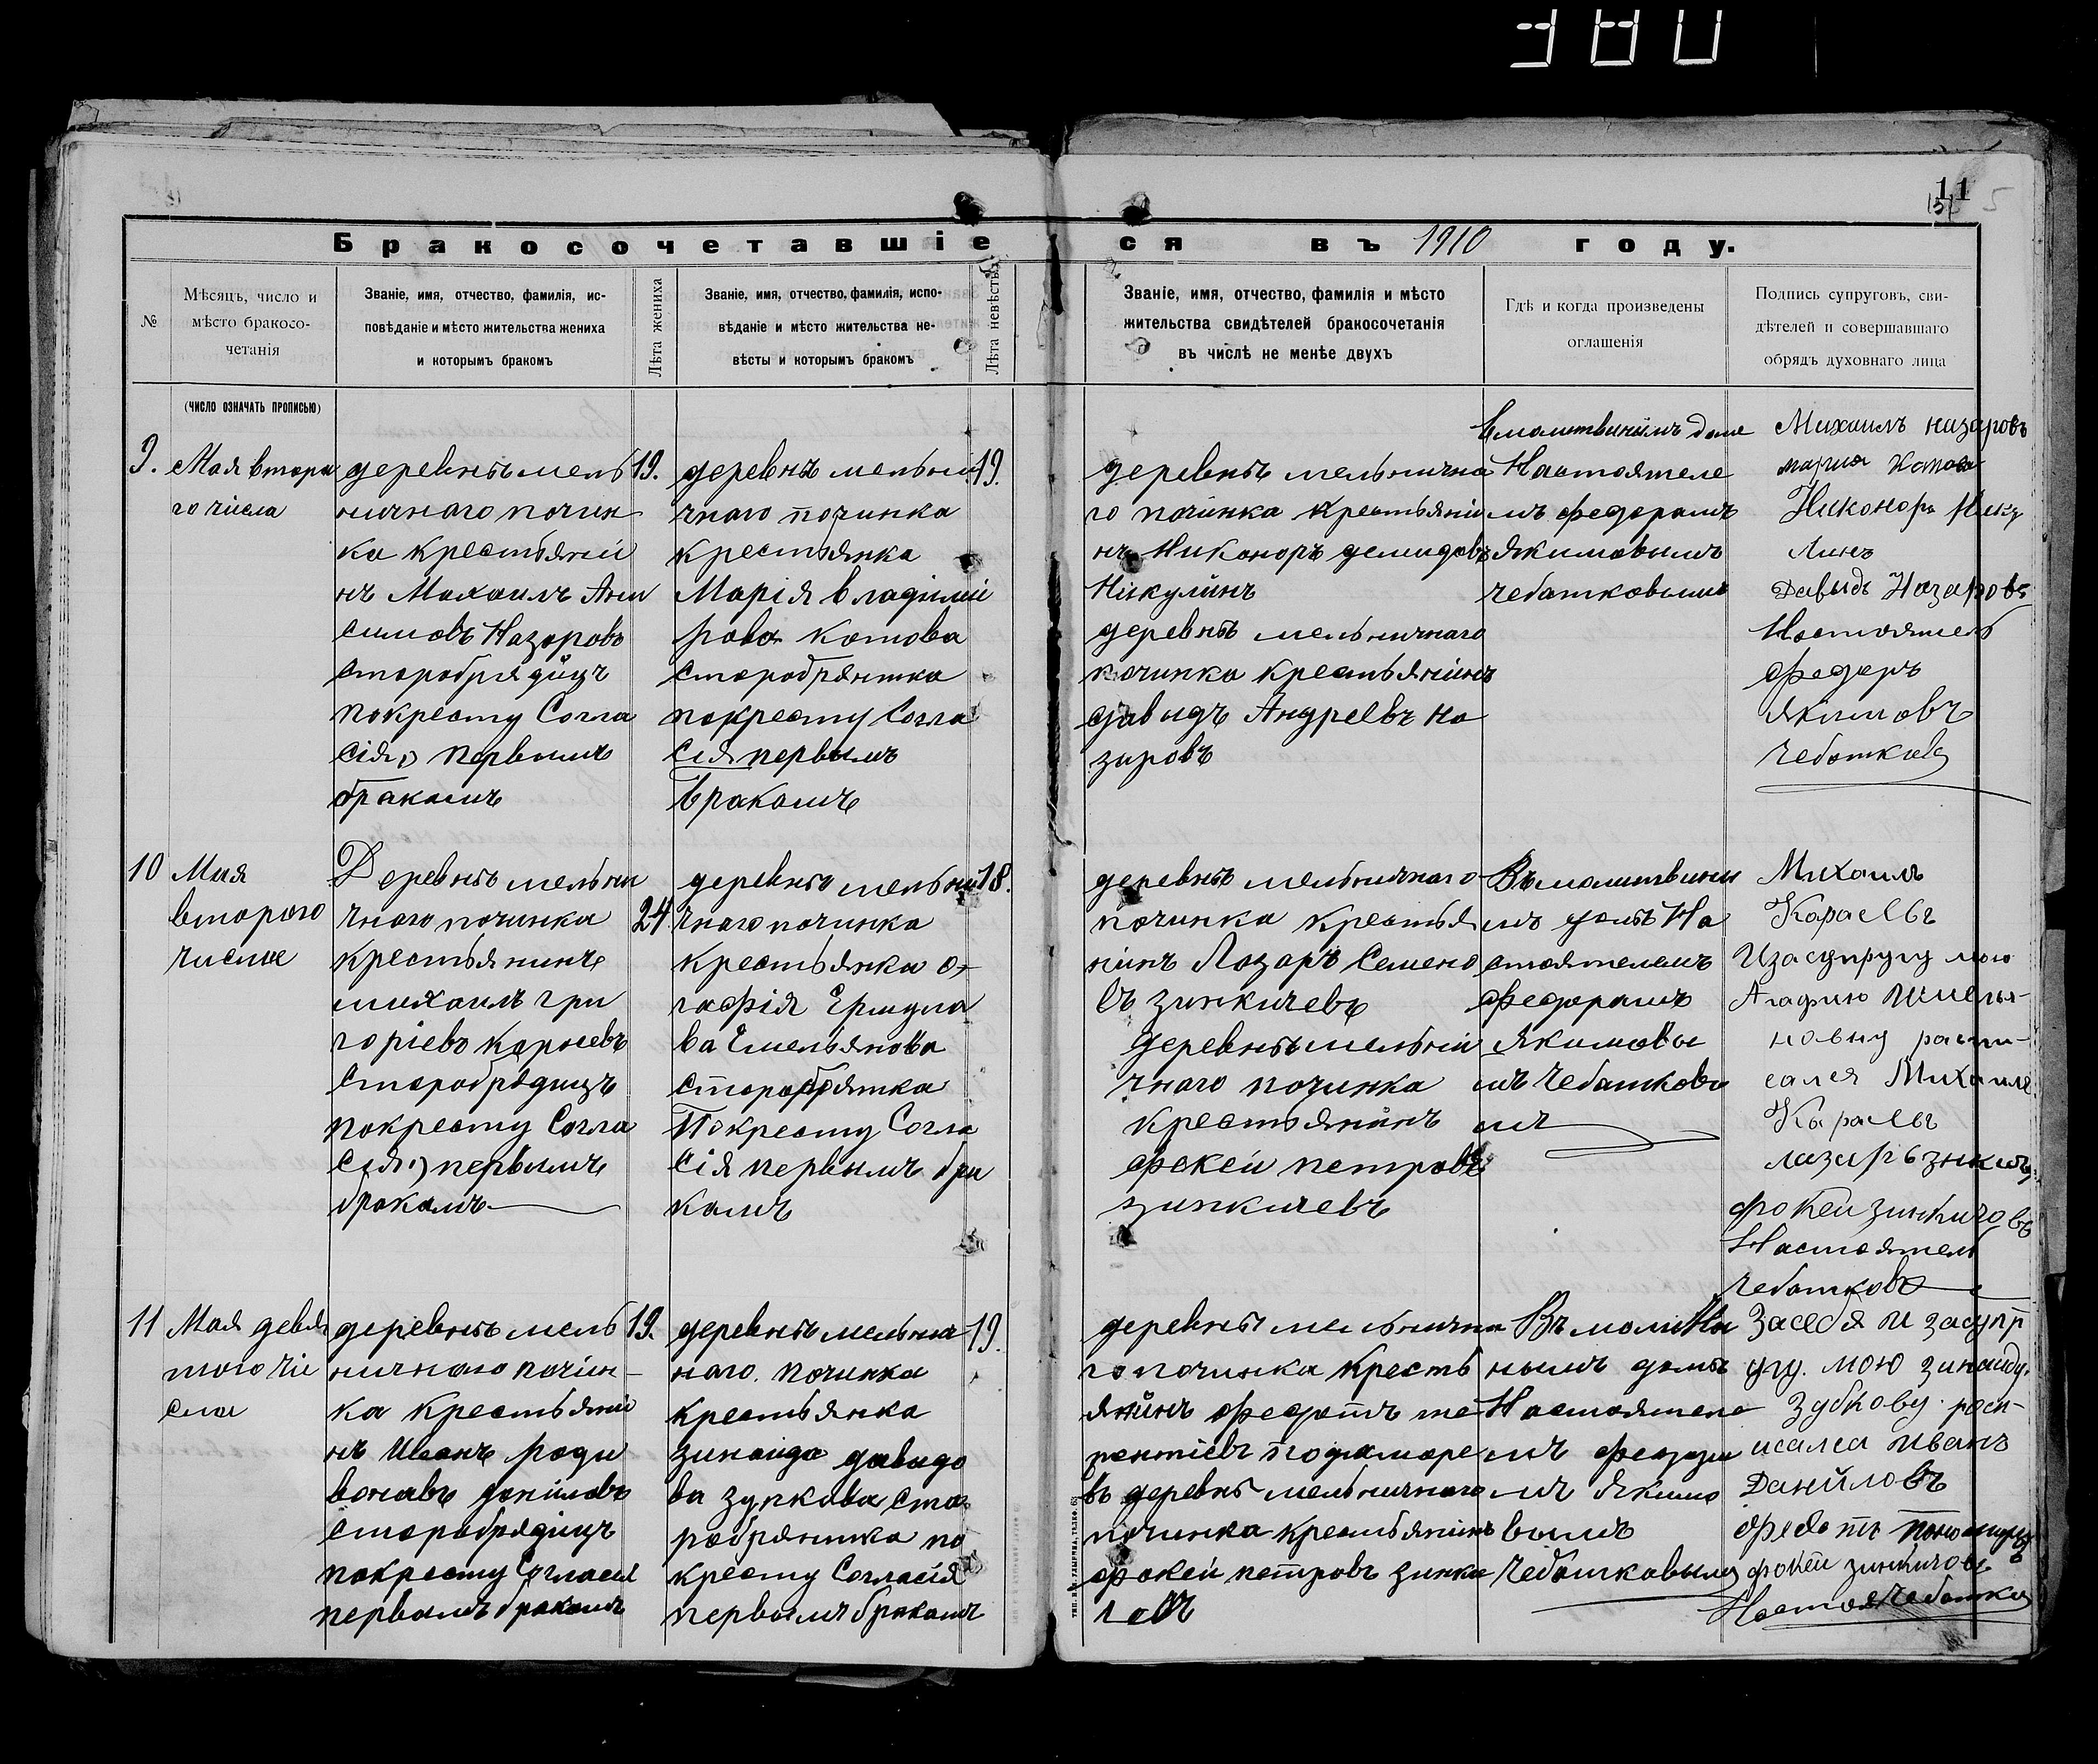 380
11
Бракосочетавшіеся въ 1910 году.
№
Мѣсяцъ, число и
мѣсто бракосо-
четанія
(число означать прописью)
Званіе, имя, отчество, фамилія, ис-
повѣданіе и мѣсто жительства жениха
и которымъ бракомъ
Лѣта жениха
Званіе, имя, отчество, фамилія, испо-
вѣданіе и мѣсто жительства не-
вѣсты и которымъ бракомъ
Лѣта невѣсты
Званіе, имя, отчество, фамилія и мѣсто
жительства свидѣтелей бракосочетанія
въ числѣ не менѣе двухъ
Гдѣ и когда произведены
оглашенія
Подпись супруговъ, сви-
дѣтелей и совершавшаго
обрядъ духовнаго лица
9.
Мая второ
го числа
деревнѣ мель
ничнаго почин
ка крестьяни
нъ Михаилъ Ани
симовъ Назаровъ
старобрядицъ
покресту Согла
сія первымъ
бракамъ
19.
деревнѣ мельни
чнаго починка
крестьянка
Марія владими
рова котова
старобрянтка
покресту Согла
сія первымъ
бракамъ
19.
деревнѣ мельнична
го починка крестьяни
нъ Никаноръ демидовъ
Никулинъ
деревнѣ мельничнаго
починка крестьянинъ
давыдъ Андреевъ На
заровъ
в молитвинымъ доме
Настоятеле
мъ федорамъ
якимовымъ
чебатковымъ
Михаилъ назаровъ
мария Котова
Никоноръ Нику
линъ
Давыдъ Назаровъ
Настоятель
федоръ
якимовъ
чебатковъ
10
Мая
второго
числа
Деревнѣ мельни
чнаго починка
крестьянинъ
михаилъ гри
горіевъ карпеевъ
старобрядицъ
покресту Согла
сія первымъ
бракамъ
24
деревнѣ мельни
чнаго починка
крестьянка а
гафія Ермула
ва Емельянова
старобрятка
Покресту Согла
сія первымъ бра
камъ
18.
деревнѣ мельничнаго
починка крестья
нинъ Лазаръ Семено
въ зинкичевъ
деревнѣ мельни
чнаго починка
крестьянинъ
фокей петровъ
зинкичевъ
Въ молитвины
мъ домѣ На
стоятелемъ
федорамъ
якимовы
мъ чебатковы
мъ
Михаилъ
Изасупругу мою
Агафию Имелья-
новну распи-
сался Михаилъ
фокей зинкичовъ
Настоятель
чебатковъ
11
Мая девя
того чи
сла
деревнѣ мель
ничнаго почин-
ка крестьяни
нъ Иванъ роди
вонавъ даниловъ
старобрядицъ
покресту Согласія
первымъ бракамъ
19.
деревнѣ мельнич
наго починка
крестьянка
зинаида давидо
ва зупкова ста
робрянтка по
кресту Согласія
первымъ бракамъ
19.
деревнѣ мельнична
го починка кресть
янинъ федотъ те
рентіевъ
въ деревнѣ мельничнаго
починка крестьянинъ
фокей петровъ зинки
човъ
Въ молит
нымъ домѣ
Настоятеле
мъ федора
мъ якимо
вымъ
чебатковымъ
За себя и за супр
угу мою зинаиду
Зубкову росп-
исалса Иванъ
Данйловъ
фокей зинкичовъ